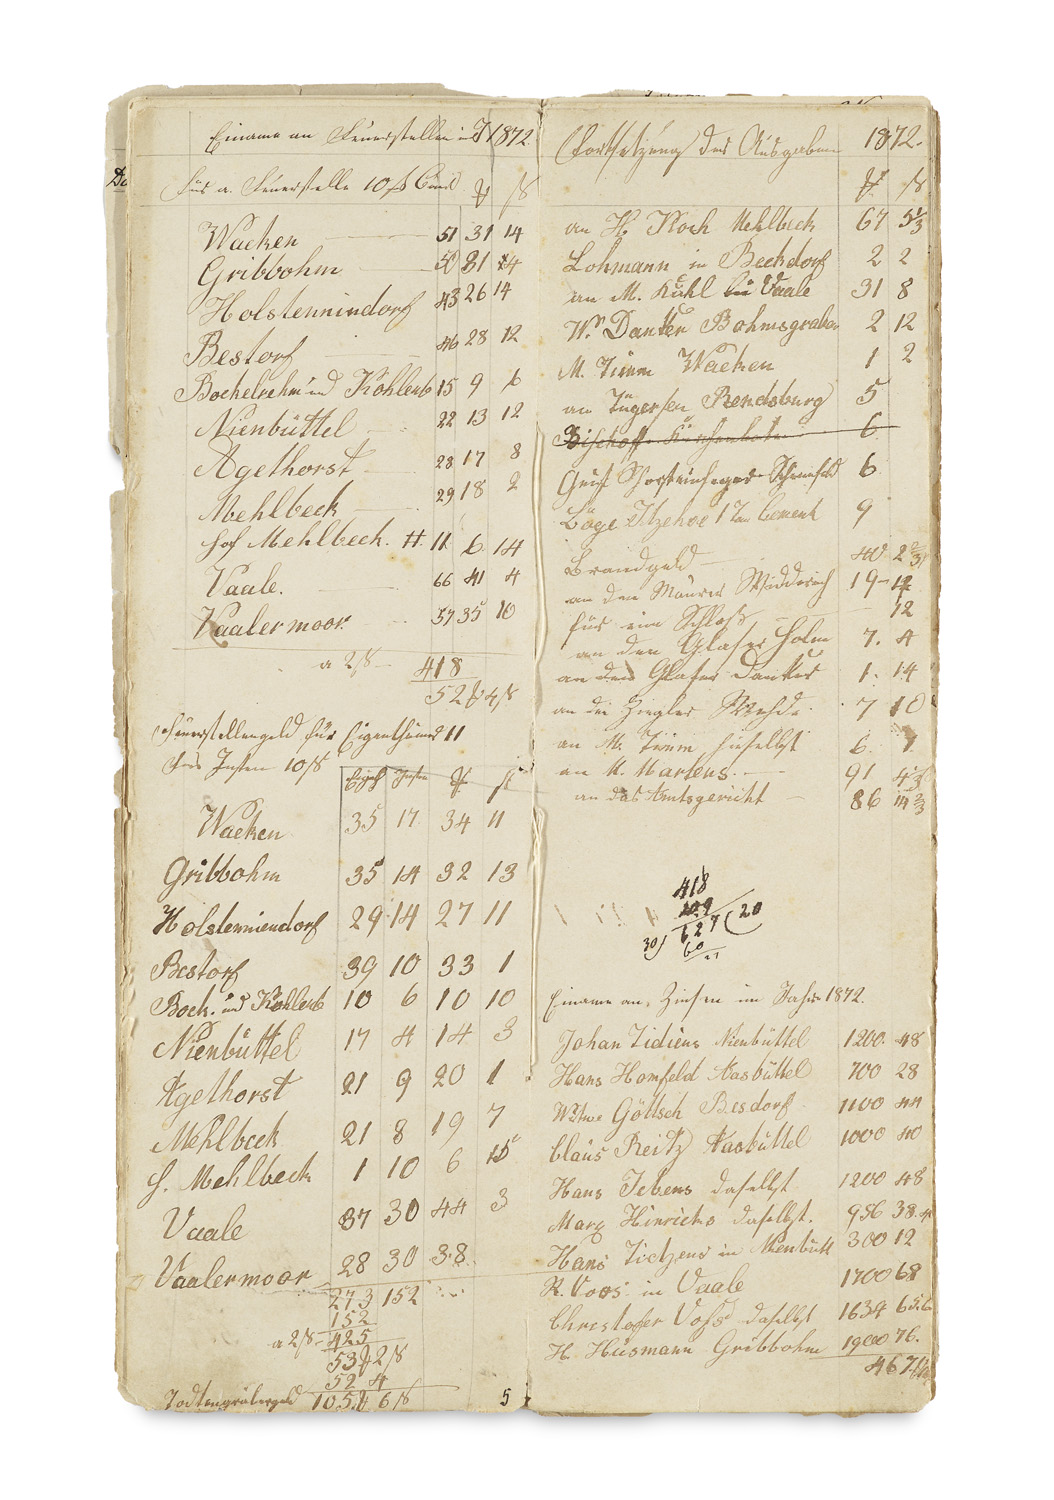 Einame an Feuerstellen im J 1872.
für a. Feuerstelle 10 ß Cour
Wacken 51 31 14
Gribbohm 50 31 4
Holstenniendorf 43 26 14
Bestorf 46 28 12
Bockelrehm und Kohlenb 15 9 6
Nienbüttel 22 13 12
Agethorst 28 17 8
Mehlbeck 29 18 2
Hof Mehlbeck. H. 11 6 14
Vaale. 66 41 4
Vaalermoor 57 35 10
a 2 ß 418
52 4 ß
Feuerstellengeld für Eigenthümer 11
für Insten 10 ß
Eigth Insten ß
Wacken 35 17 34 11
Gribbohm 35 14 32 13
Holstenniendorf 29 14 27 11
Bestorf 39 10 33 1
Bock. und Kohlenb 10 6 10 10
Nienbüttel 17 4 14 3
Agethorst 21 9 20 1
Mehlbeck 21 8 19 7
H. Mehlbeck 1 10 6 15
Vaale 37 30 44 3
Vaalermoor 28 30 38
273 152
152
a 2 ß 425
53 2 ß
52 4
Todtengräbergeld 105 6 ß
5
Fortsetzung der Ausgaben 1872.
ß
an H. Koch Mehlbeck 67 5 1/3
Lohmann in Beckdorf 2 2
an M. Kühl Vaale 31 8
Wm Danker Bohmsgraben 2 12
M. Timm Wacken 1 2
an Jügersen Rendsburg 5
Bischoff 6
Schornsteinfeger Schenefeld 6
Löge Itzehoe 1 Ton Cement 9
Brandgeld 40 2 2/3
an den Maurer Widderich 19 14
für ein Schloß 12
an den Glaser Holm 7. 4
an den Glaser Danker 1. 14
an die Ziegler Wehde 7 10
an M. Timm hieselbst 6 7
an M. Martens. 91 4
an das Amtsgericht 86 14 2/3
418
209
30 ) 627 ( 20
60
27
Einame an Zinsen im Jahr 1872.
Johan Tidiens Nienbüttel 1200. 48
Hans Homfeld Aasbüttel 700 28
Wtwe Göttsch Besdorf 1100 44
Claus Reitz Aasbüttel 1000 40
Hans Jebens daselbst 1200 48
Marx Hinrichs daselbst. 956 38
Hans Tietzens in Nienbütt 300 12
R. Voss in Vaale 1700 68
Christofer Voss daselbst 1634 65
H. Hüsmann Gribbohm 1900 76.
467